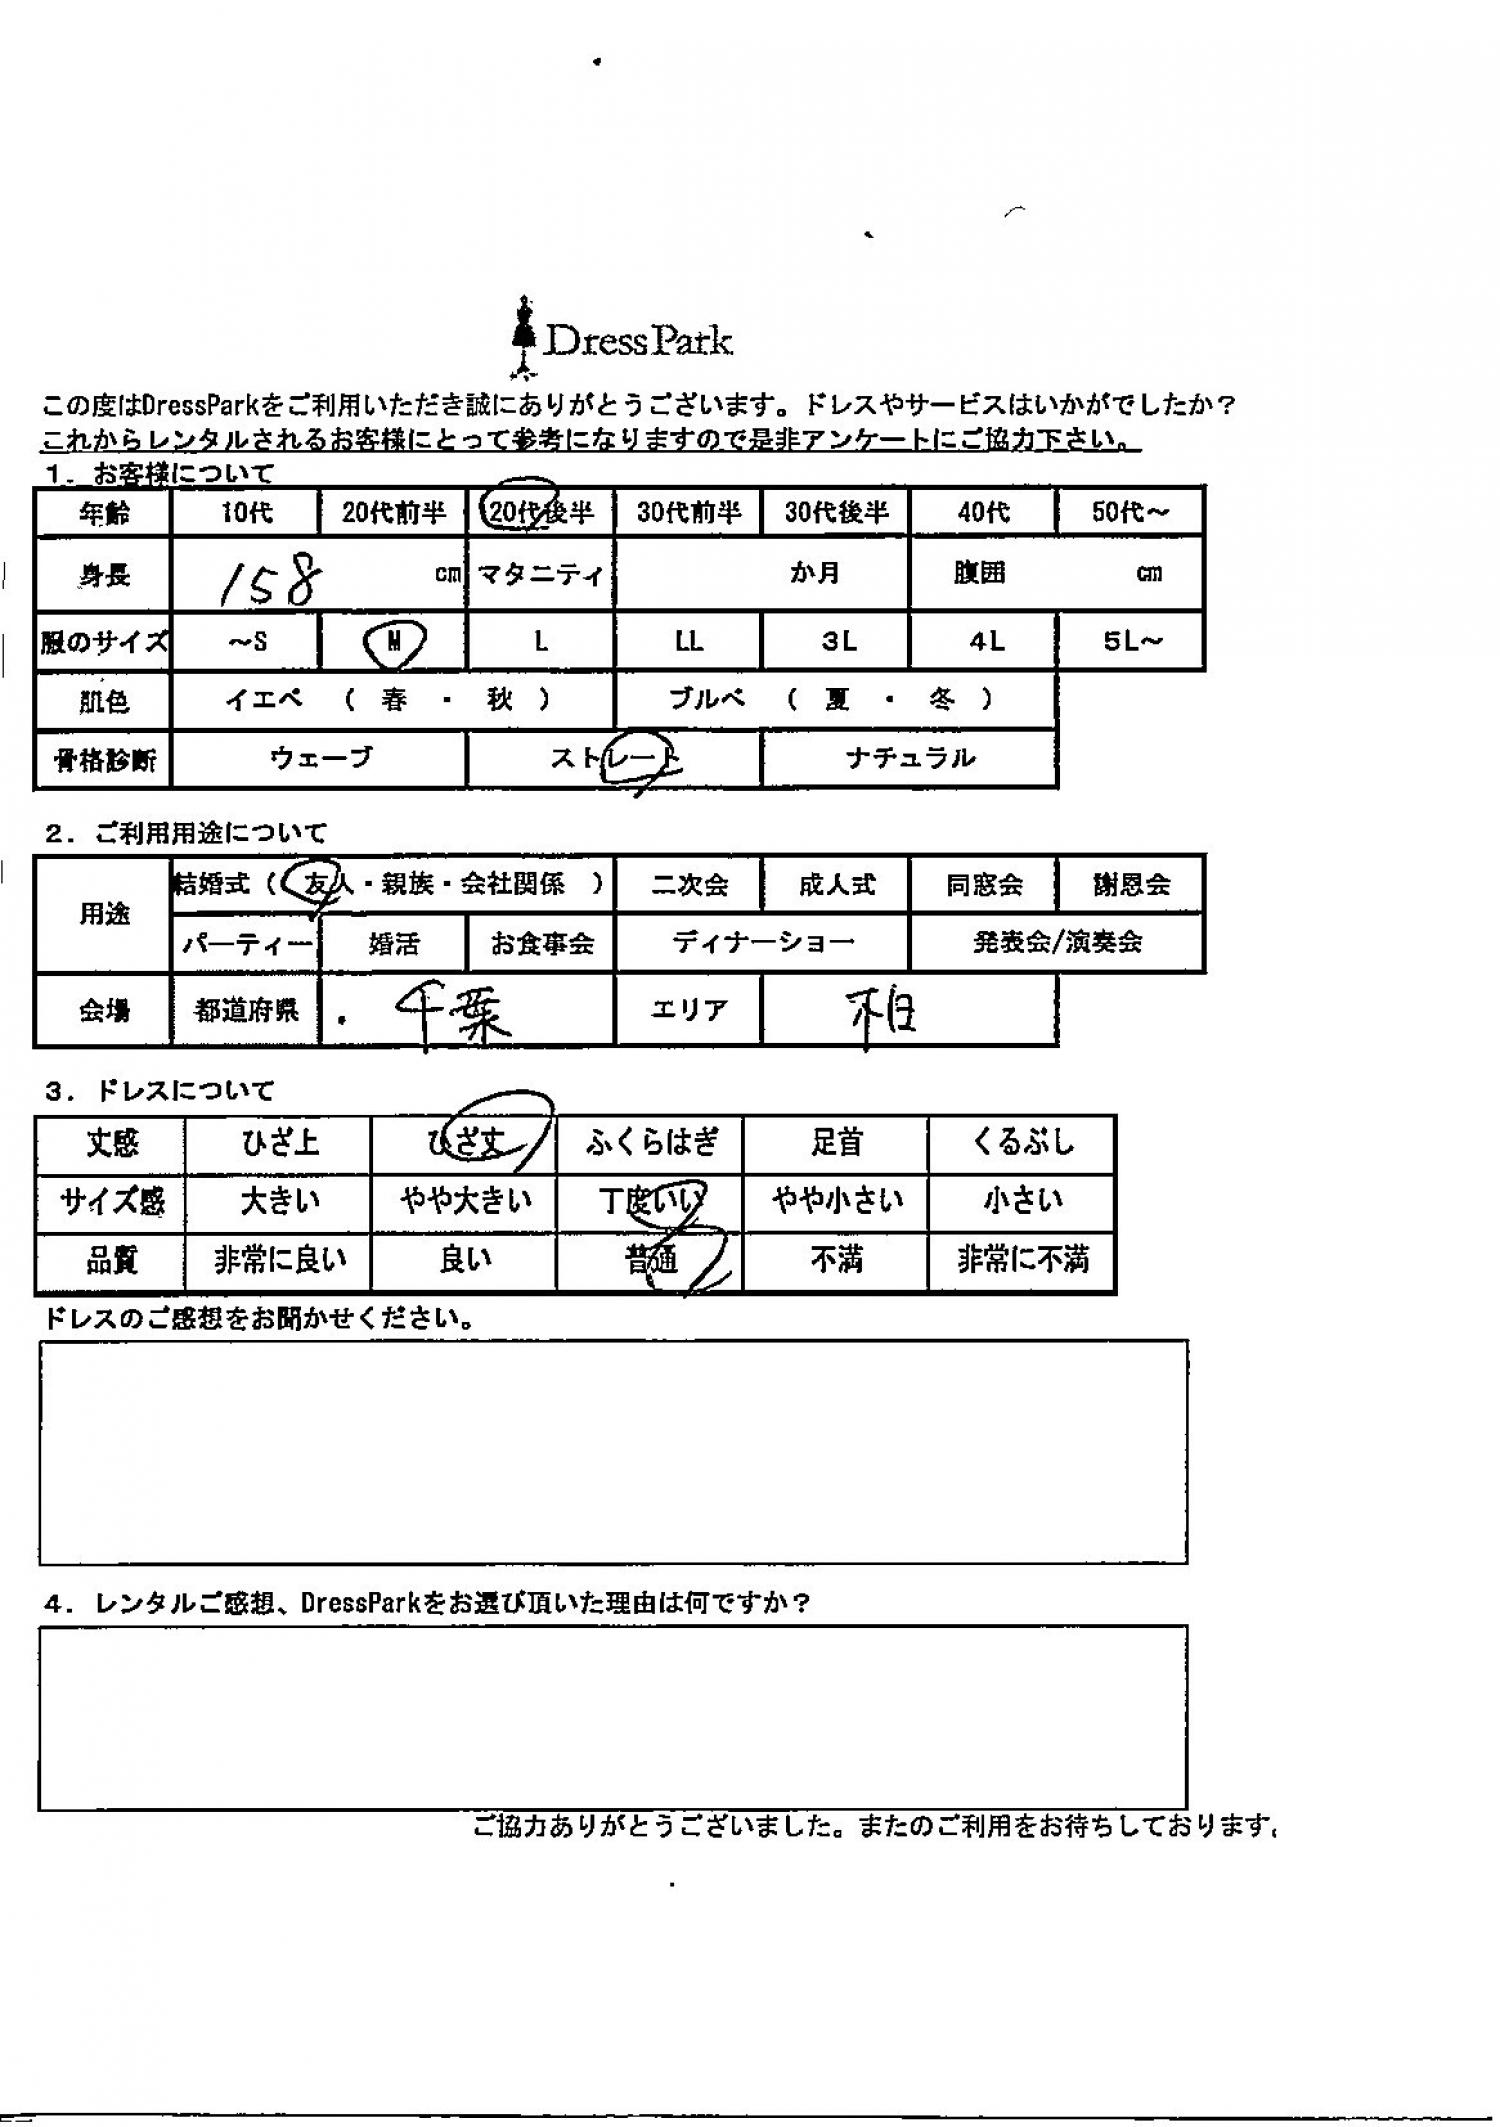 DressPark
この度はDressParkをご利用いただき誠にありがとうございます。ドレスやサービスはいかがでしたか？
これからレンタルされるお客様にとって参考になりますので是非アンケートにご協力下さい。
1．お客様について
年齢 10代 20代前半 20代後半 30代前半 30代後半 40代 50代～
身長 158 cm マタニティ か月 腹囲 cm
服のサイズ ～S M L LL 3L 4L 5L～
肌色 イエベ （ 春 ・ 秋 ） ブルベ （ 夏 ・ 冬 ）
骨格診断 ウェーブ ストレート ナチュラル
2．ご利用用途について
用途 結婚式（ 友人・親族・会社関係 ） 二次会 成人式 同窓会 謝恩会
パーティー 婚活 お食事会 ディナーショー 発表会/演奏会
会場 都道府県 千葉 エリア 柏
3．ドレスについて
丈感 ひざ上 ひざ丈 ふくらはぎ 足首 くるぶし
サイズ感 大きい やや大きい丁度いい やや小さい 小さい
品質 非常に良い 良い 普通 不満 非常に不満
ドレスのご感想をお聞かせください。
4．レンタルご感想、DressParkをお選び頂いた理由は何ですか？
ご協力ありがとうございました。またのご利用をお待ちしております。